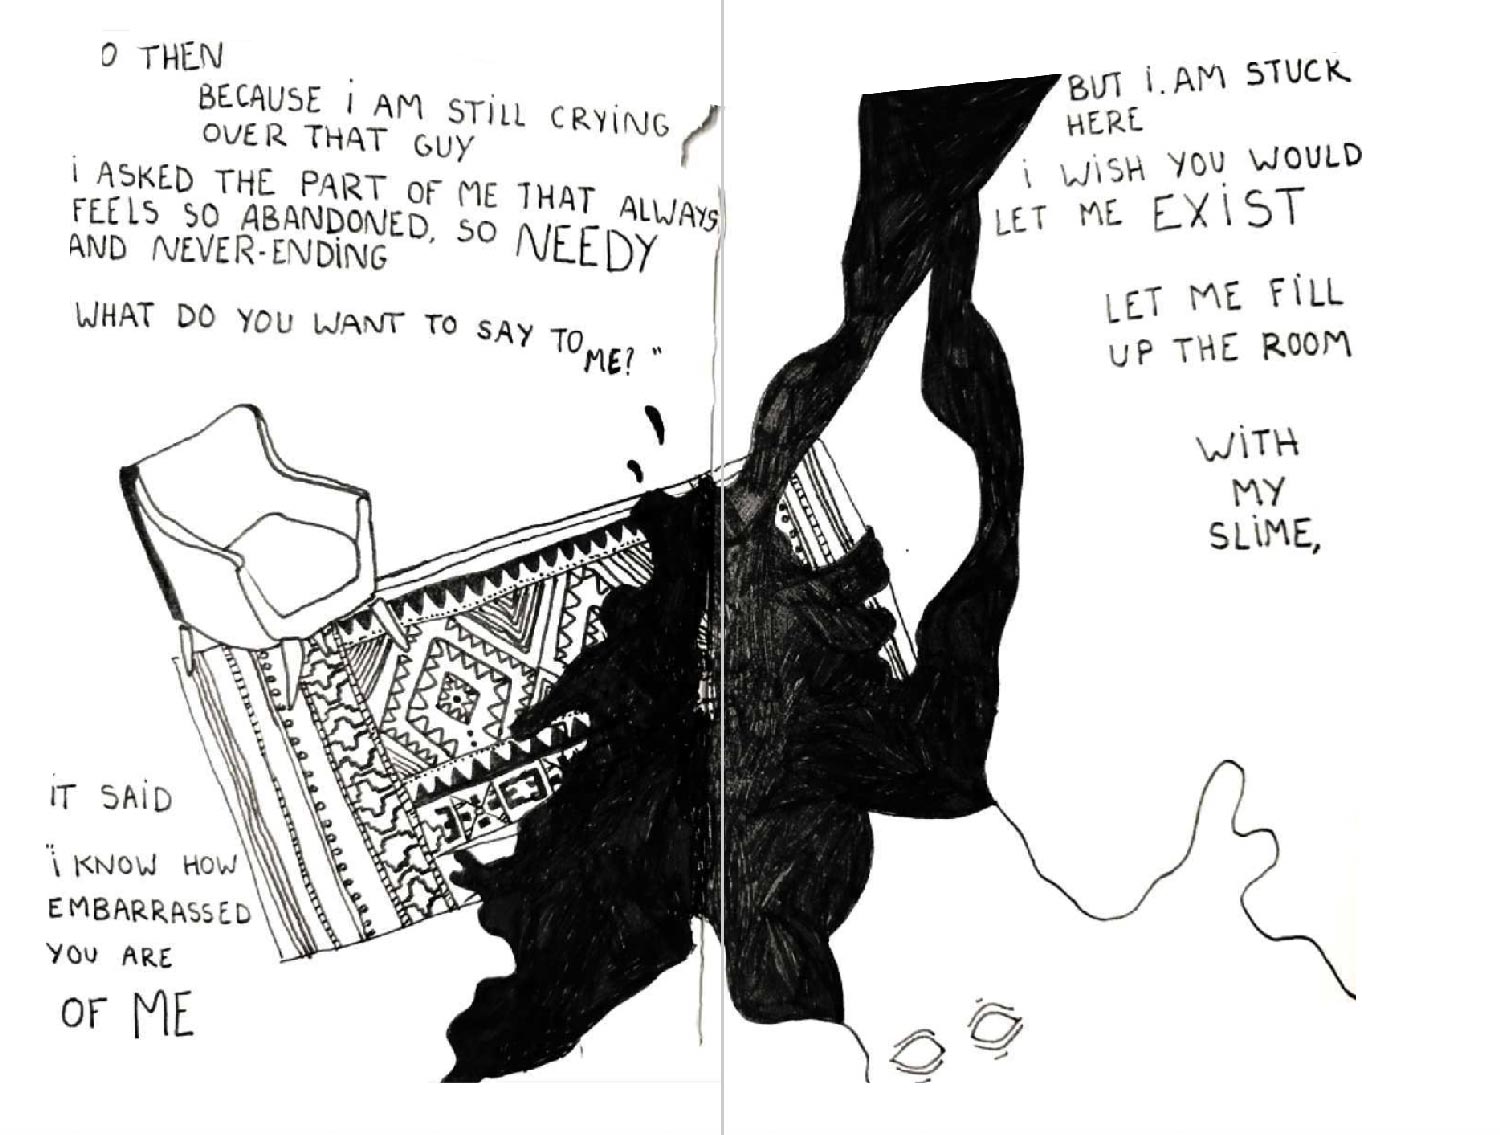 O THEN
BECAUSE i AM STiLL CRYiNG
OVER THAT GUY
i ASKED THE PART OF ME THAT ALWAYS
FEELS SO ABANDONED, SO NEEDY
AND NEVER-ENDiNG
WHAT DO YOU WANT TO SAY TO ME? "
iT SAiD
"i KNOW HOW
EMBARRASSED
YOU ARE
OF ME
BUT i.AM STUCK
HERE
i WiSH YOU WOULD
LET ME EXiST
LET ME FiLL
UP THE ROOM
WiTH
MY
SLiME,